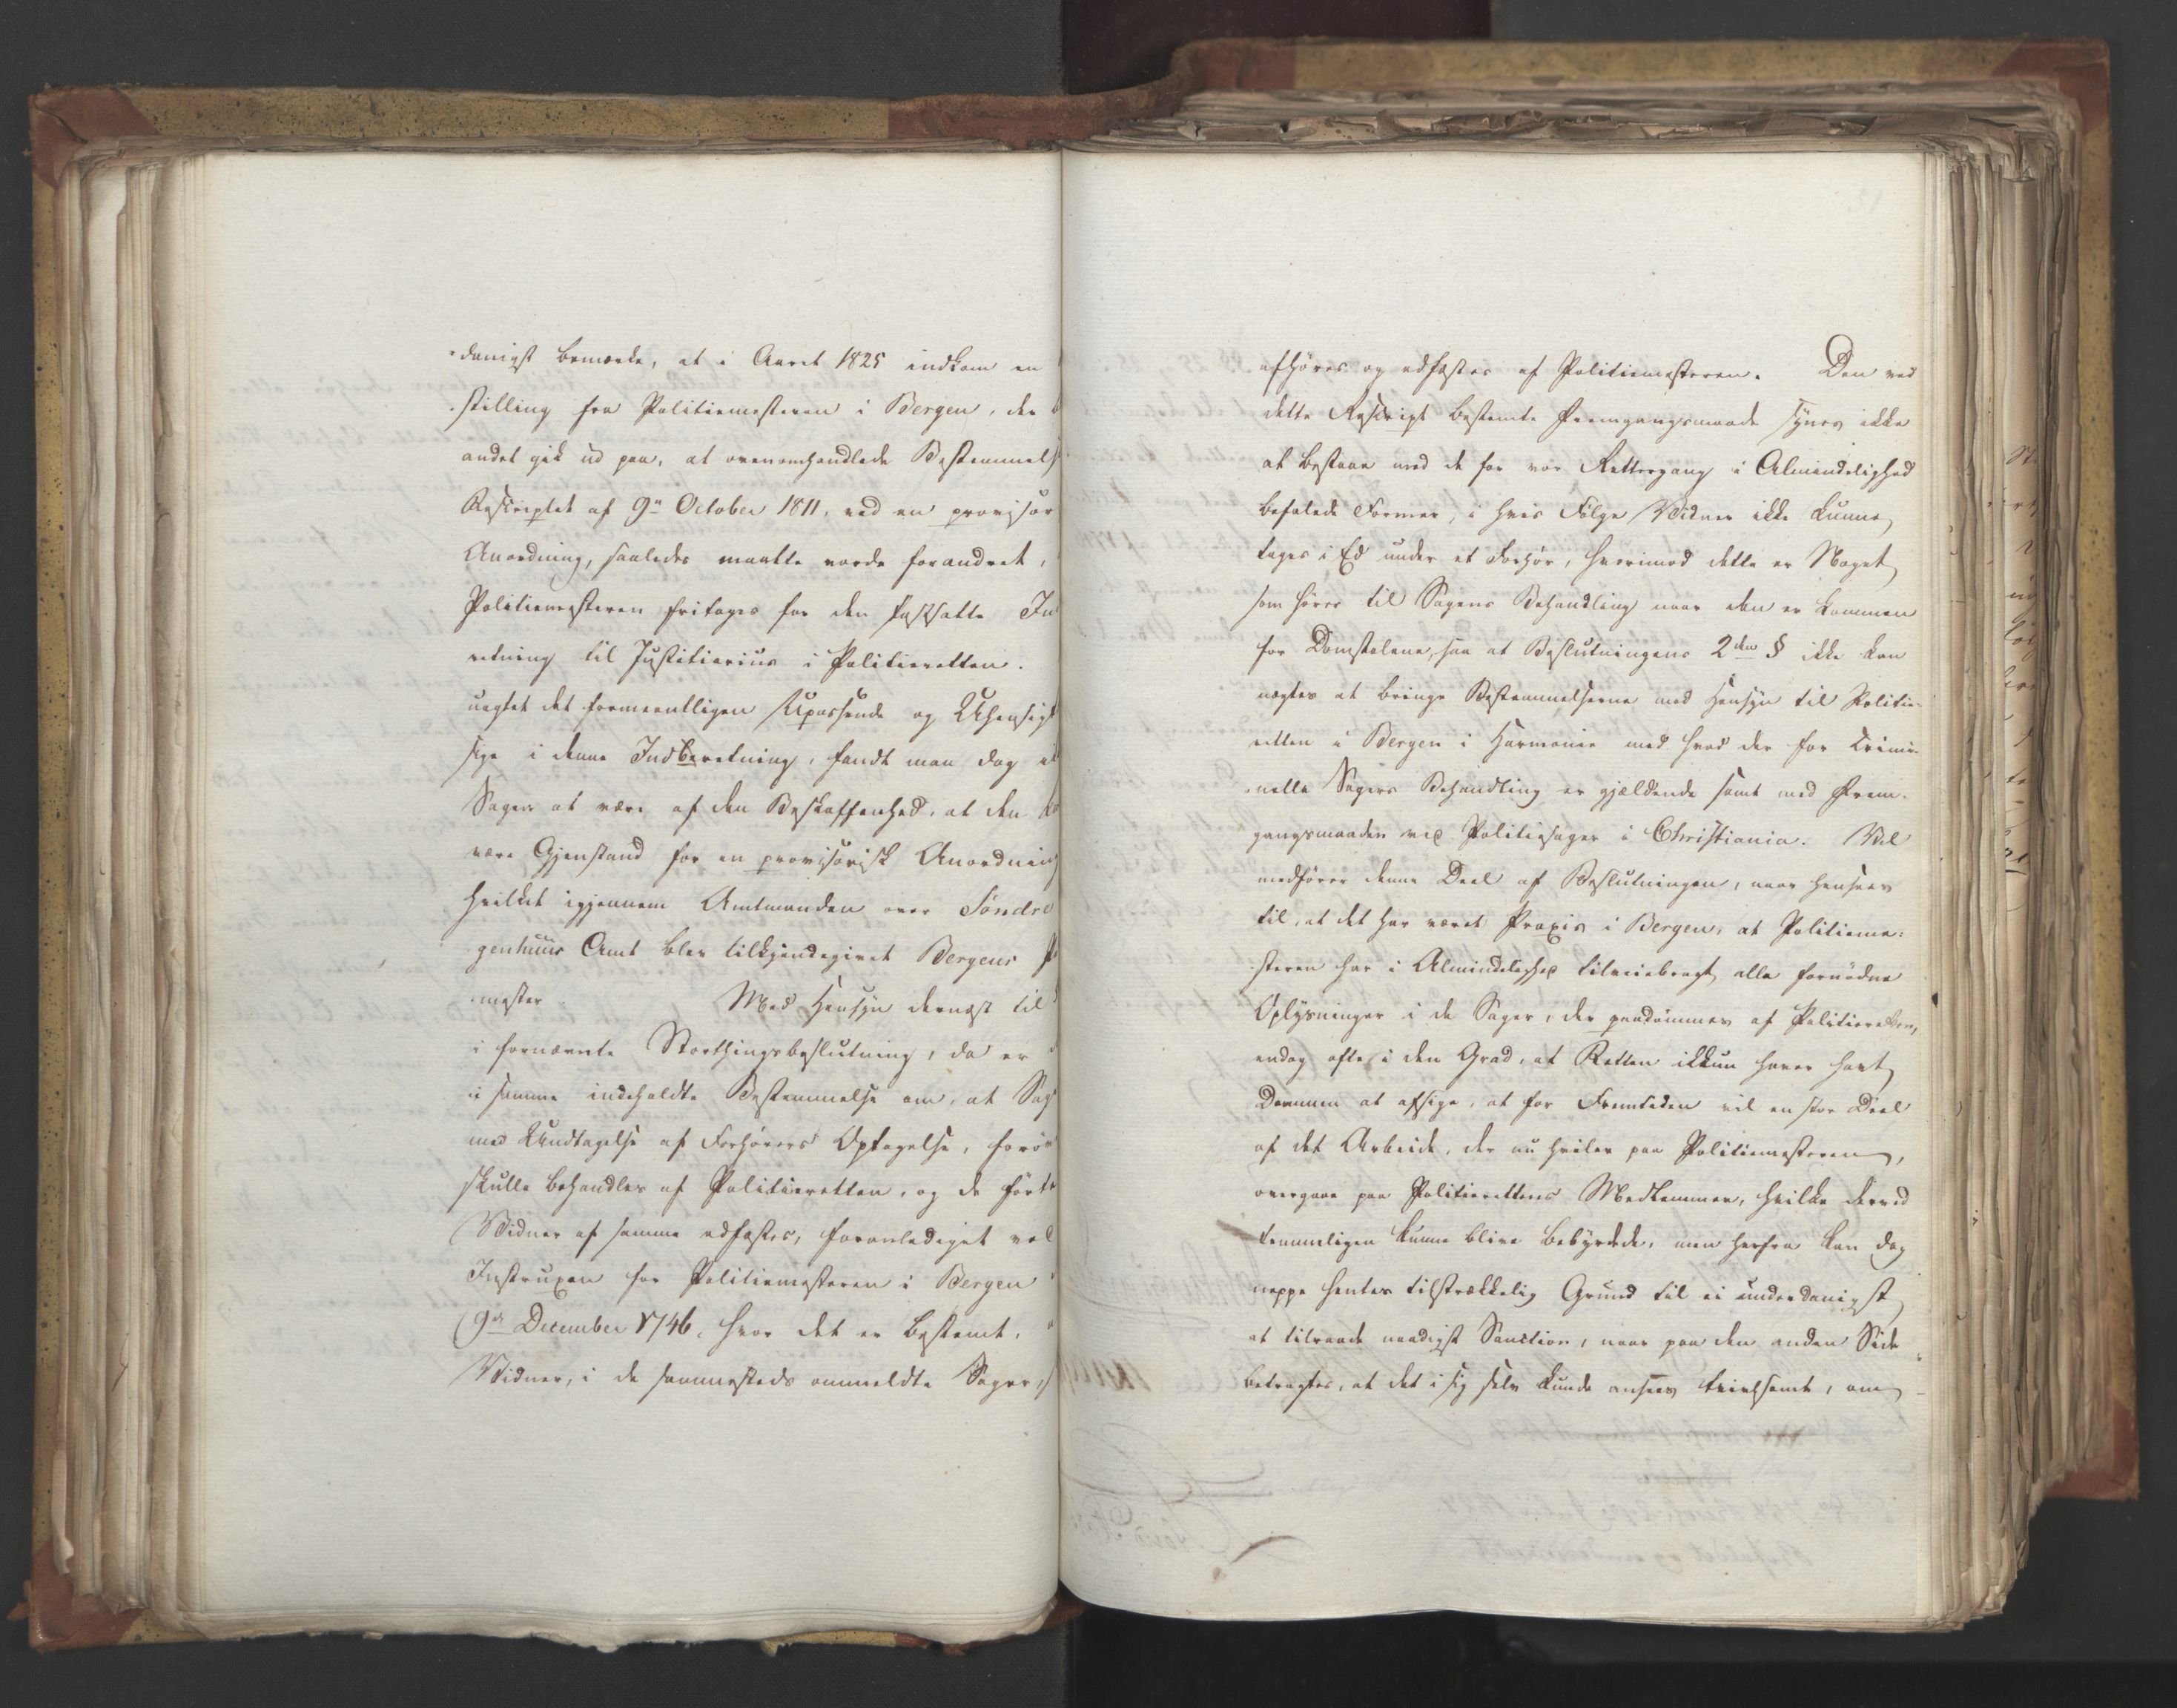 -danigst bemærke, at i Aaret 1825 indkom en
stilling fra Politiemesteren i Bergen, der
andet gik ud paa, at ovenomhandlede Bestemmels
Rescriptet af 9de October 1811, ved en provisor
Anordning, saaledes maatte vorde forandret,
Politiemesteren fritages for den fastsatte In
retning til Justitiarius i Politieretten.
uagtet det formeentligen Upassende og Uhensigt
sige i denne Indberetning, fandt man dog ei
Sagen at være af den Beskaffenhed, at den
være Gjenstand for en provisorisk Anordning
hvilket igjennem Amtmanden over Söndre
genhuus Amt blev tilkjendegivet Bergens P
mester. Med Hensyn dernæst til
i fornævnte Storthingsbeslutning, da er
i samme indeholdte Bestemmelse om, at Sag
med Undtagelse af Forhörers Optagelse, forör
skulle behandles af Politieretten, og de förte
Vidner af samme edfæstes, foranlediget ved
Instruxen for Politiemesteren i Bergen
9de December 1746, hvor det er bestemt,
Vidner, i de sammesteds ommeldte Sager,
afhöres og edfæstes af Politiemesteren. Den ved
dette Rescript bestemte Fremgangsmaade synes ikke
at bestaae med de for vor Rettergang i Almindelighed
befalede Former, i hvis Fölge Vidner ikke kunne
tages i Ed under et Forhör, hvorimod dette er Noget
som hörer til Sagens Behandling naar den er kommen
for Domstolene, saa at Beslutningens 2den § ikke kan
nægtes at bringe Bestemmelserne med Hensyn til Politie-
retten i Bergen i Harmonie med hvad der for crimi-
nelle Sagers Behandling er gjældende samt med Frem-
gangsmaaden ved Politiesager i Christiania. Vel
medförer denne Deel af Beslutningen, naar hensees
til, at det har været Praxis i Bergen, at Politieme-
steren har i Almindelighed tilveiebragt alle fornödne
Oplysninger i de Sager, der paadömmes af Politieretten,
endog ofte i den Grad, at Retten ikkun haver havt
Dommen at afsige, at for Fremtiden vil en stor Deel
af det Arbeide, der nu hviler paa Politiemesteren,
overgaae paa Politierettens Medlemmer, hvilke derved
temmeligen kunne blive bebyrdede, men herfra kan dog
neppe hentes tilstrækkelig Grund til ei underdanigst
at tilraade naadigst Sanction, naar paa den anden Side
betragtes, at det i sig selv kunde ansees tvivlsomt, om